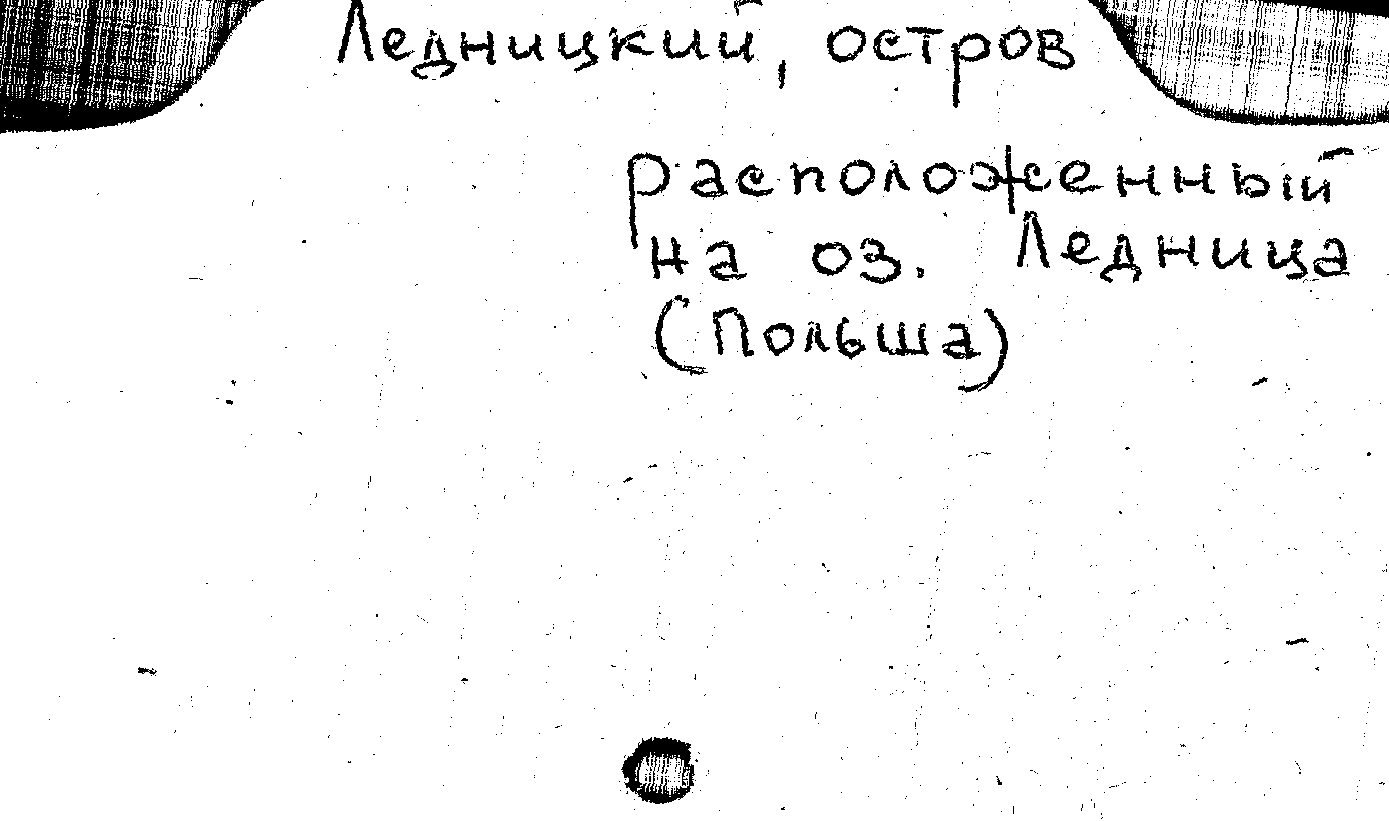 Ледницкий, остров
расположенный
на оз. Ледница
(Польша)